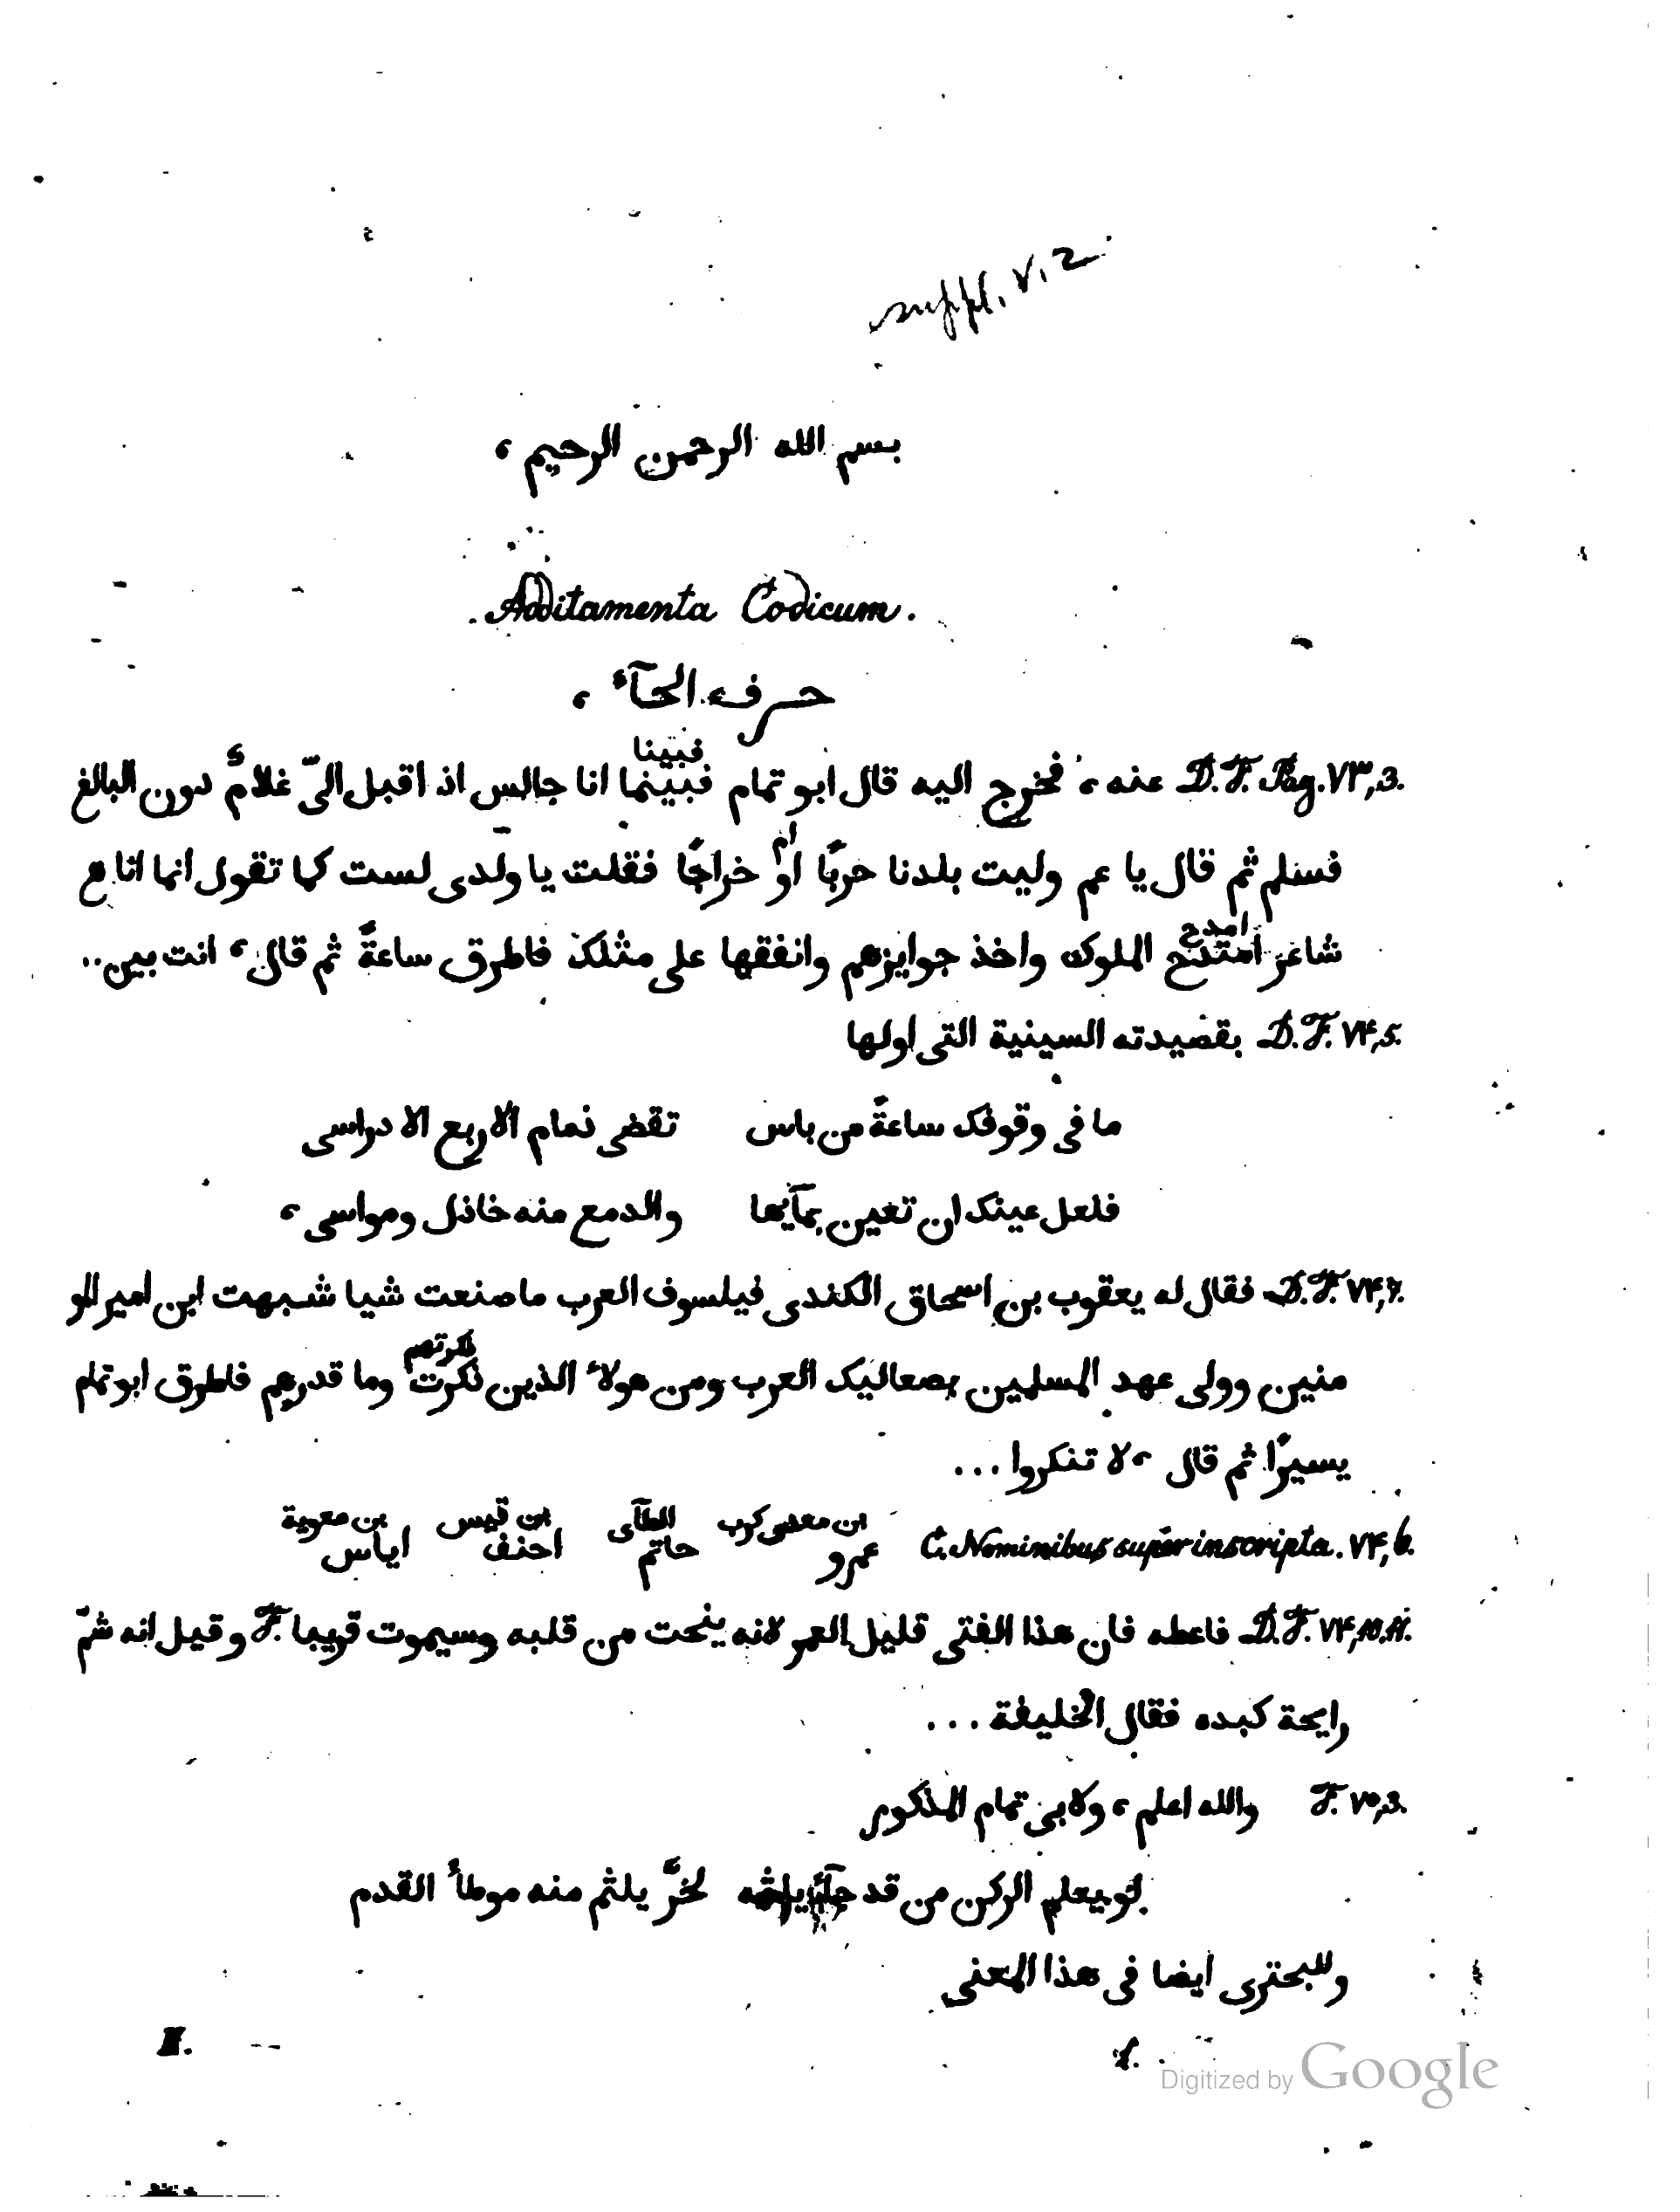 suppl. v. 2
بسم الله الرحمن الرحيم ،
Additamenta Codicum.
حرف الحآء ،
فبينا
D. F. Pag. ٧٣,3. عنه ، فخرج اليه قال ابو تمام فبينما انا جالس اذ اقبل الىّ غلامٌ دون البالغ
ام
فسلم ثم قال يا عم وليت بلدنا حربًا او خراجًا فقلت يا ولدى لست كما تقول انما انا ع
امدح
شاعر امتدح الملوك واخذ جوايزهم وانفقها على مثلك فاطرق ساعةً ثم قال ، انت بين..
D. F. ٧۴,5. بقصيدته السينية التى اولها
ما فى وقوفك ساعةً من باس تقضى ذمام الاربع الادراسى
فلعل عينك ان تعين بمآيها والدمع منه خاذل ومواسى ،
D. F. ٧۴,7. فقال له يعقوب بن اسحاق الكندى فيلسوف العرب ما صنعت شيا شبهت ابن امير المو
ذكرتهم
منين وولى عهد المسلمين بصعاليك العرب ومن هولاء الذين ذكرت وما قدرهم فاطرق ابو تمام
يسيرًا ثم قال ، لا تنكروا ...
بن معدى كرب الطآى ابن قيس بن معوية
C. Nominibus superinscripta. ٧۴,6. عمرو حاتم احنف اياس
D. F. ٧۴,10.11. فاعطه فان هذا الفتى قليل العمر لانه ينحت من قلبه وسيموت قريبا F. وقيل انه شمّ
رايحة كبده فقال الخليفة ...
F. ٧٥,3. والله اعلم ، ولابى تمام المذكور
لو يعلم الركن من قد جآء يلثمه لخرَّ يلثم منه موطأ القدم
وللبحترى ايضا فى هذا المعنى
II. 1.
Digitized by Google